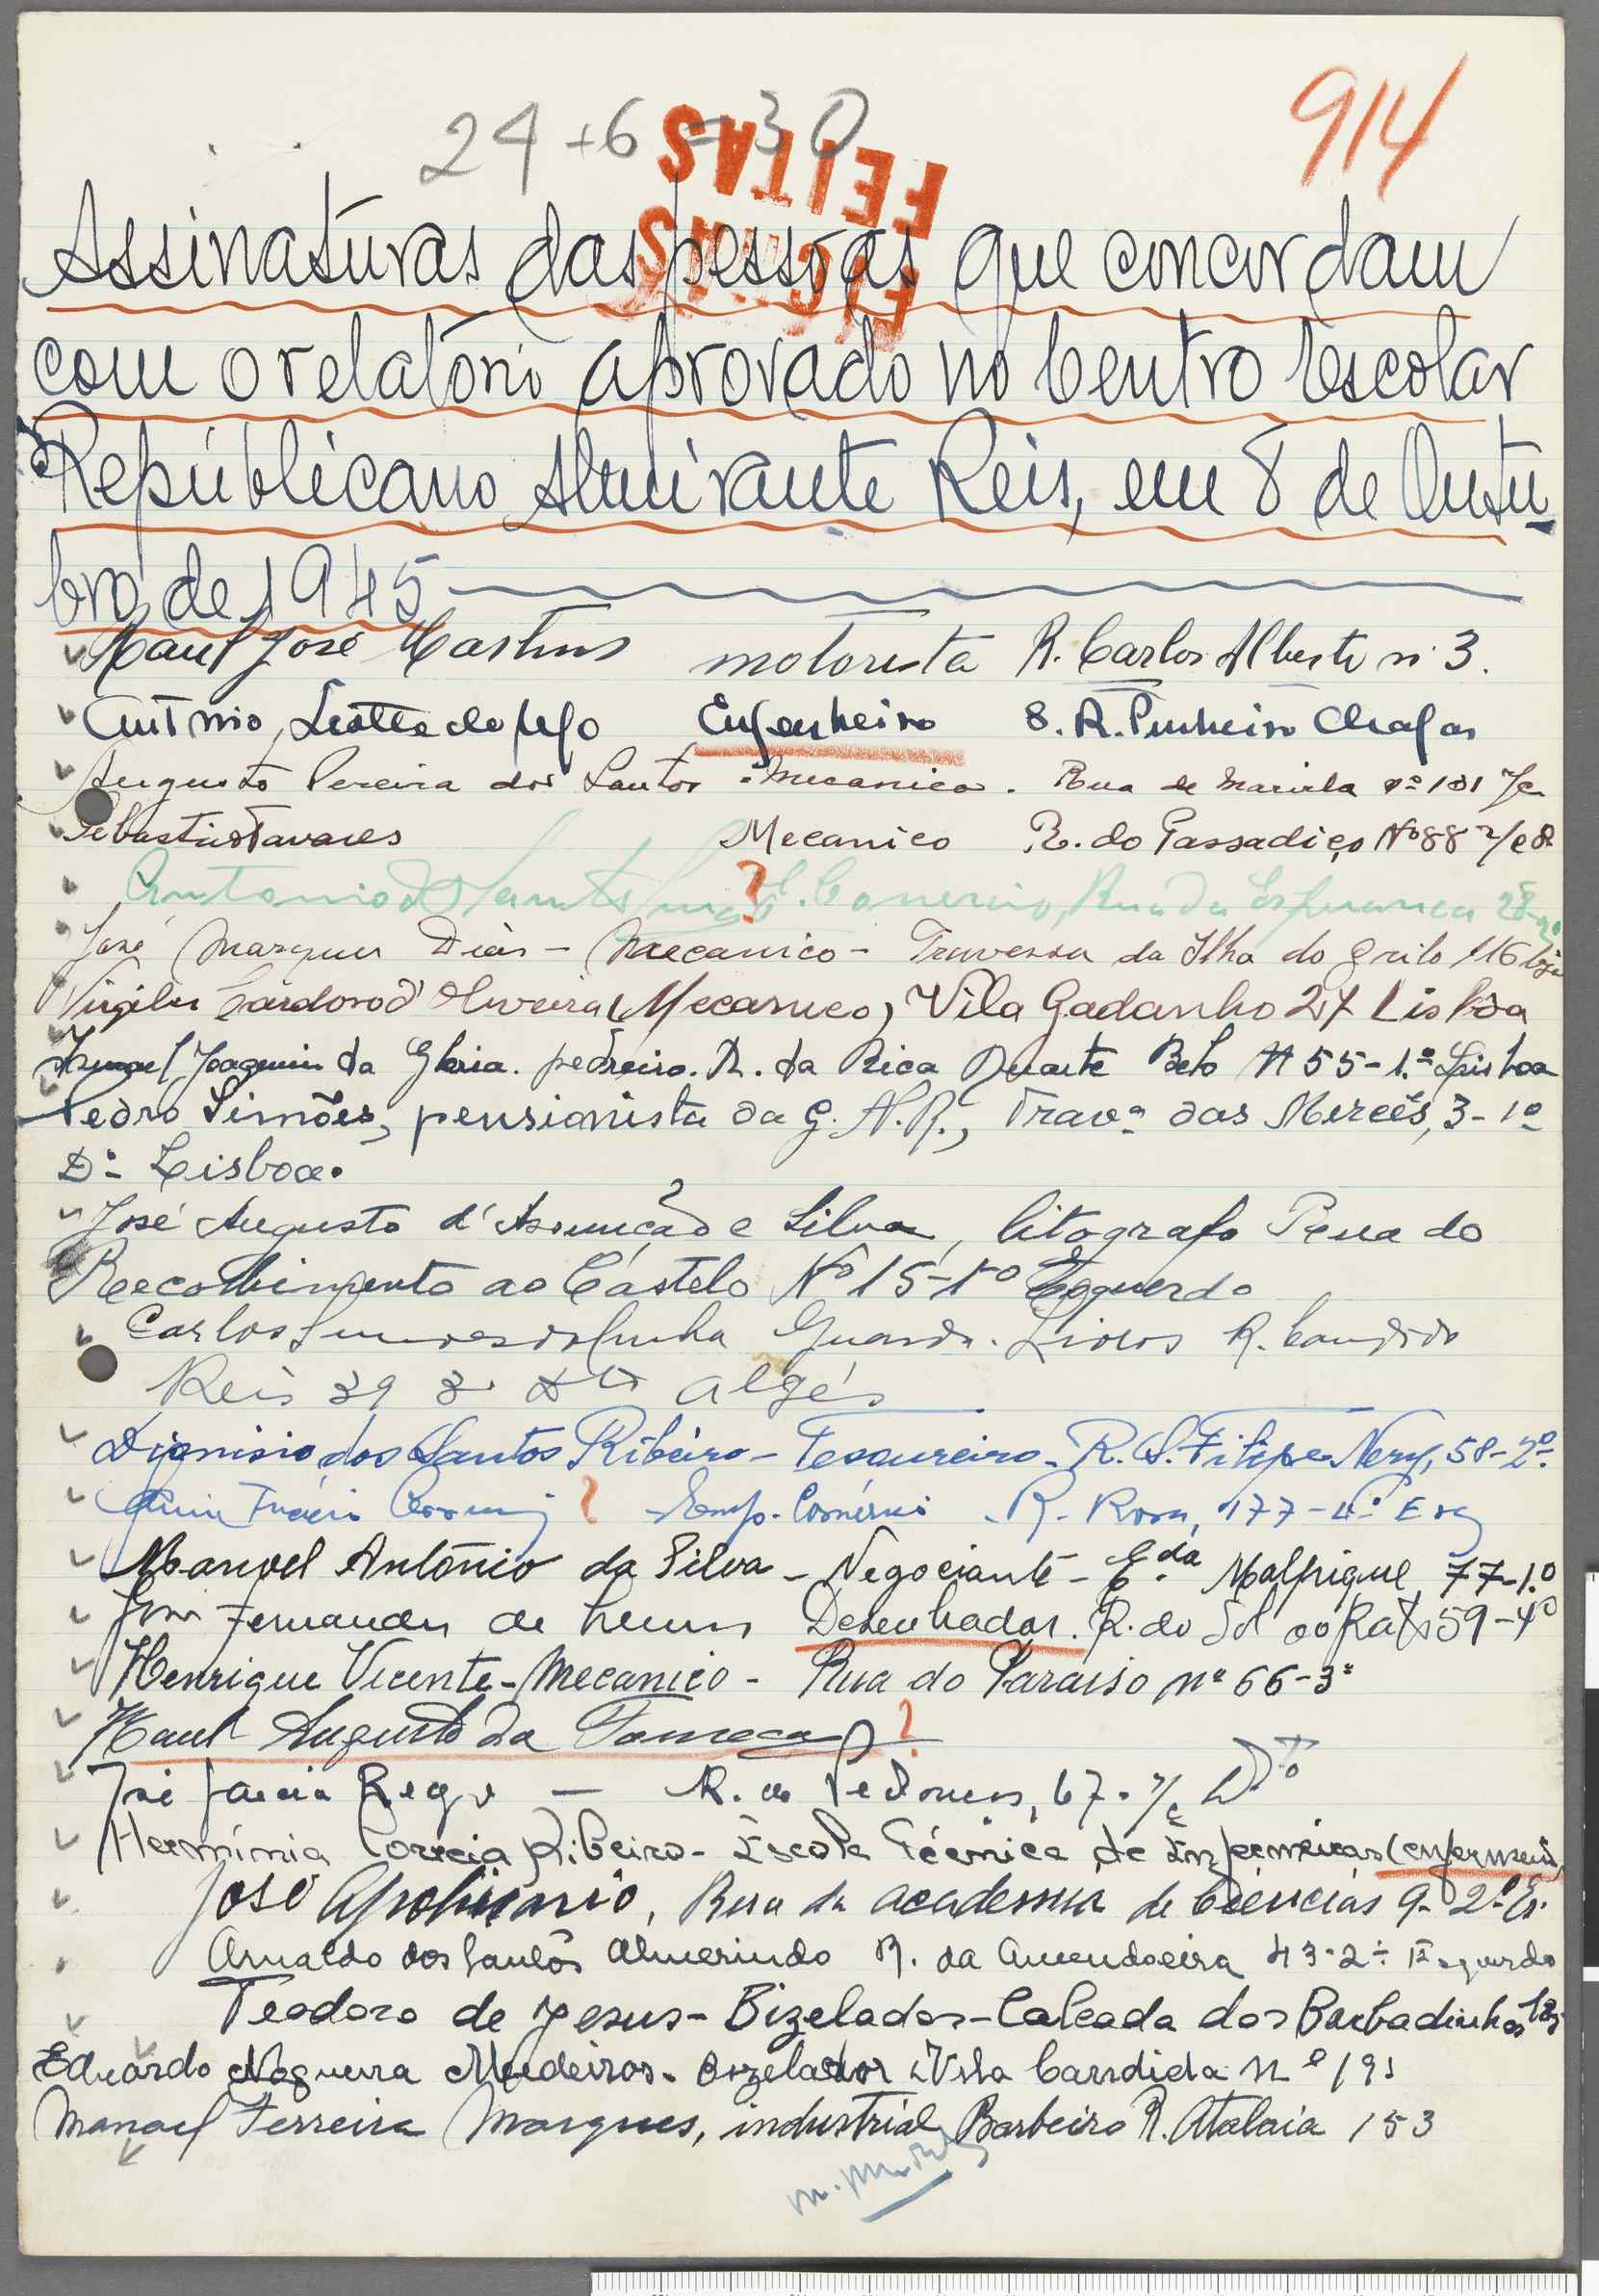 24 + 6 = 30
914
FICHAS
FEITAS
Assinaturas das pessoas que concordam
com o relatório aprovado no Centro Escolar
Republicano Almirante Reis, em 8 de Outu-
bro de 1945
Raul José Martins motorista R. Carlos Alberto nº 3.
António Liotte do Rego Engenheiro 8. R. Pinheiro Chagas
Augusto Pereira dos Santos - Mecanico - Rua de Marvila nº 101 r/c
Sebastião Tavares Mecanico R. do Passadiço Nº 88 r/c
Antonio Comercio, Rua da Esperança 28
José Marques Dias - Mecanico - Travessa da Ilha do Grilo 116 loja
Virgilio Cardoso d'Oliveira (Mecanico) Vila Gadanho 27 Lisboa
Joaquim da Gloria. pedreiro. R. da Bica Duarte Belo Nº 55-1.º Lisboa
Pedro Simões, pensionista da G. N. R., Travª das Mercês, 3-1º
Dº Lisboa.
José Augusto d'Assunção e Silva, litografo Rua do
Recolhimento ao Castelo Nº 15-1º Esquerdo
Carlos Guarda-Livros R. Candido
Reis 39 3º Dto Algés
Dionisio dos Santos Ribeiro - Tesoureiro - R. S. Filipe Nery, 58-2º
? Emp. Comércio R. Rosa, 177-4º Esq
Manoel António da Silva - Negociante - C.da Malpique 77-1.º
Fernandes de Lemos Desenhador. R. do Sol ao Rato 59-4º
Henrique Vicente - Mecanico - Rua do Paraiso nº 66-3º
Raul Augusto da Fonseca ?
José Garcia Rego — R. dos Pedrouços, 67. r/c Dto
Hermínia Correia Ribeiro - Escola Técnica de Enfermeiras (enfermeira)
José Apolinario, Rua da Academia de Ciencias 9-2º Es.
Arnaldo dos Santos Almerindo R. da Amendoeira 43-2º Esquerdo
Teodoro de Jesus - Bizelador - Calçada dos Barbadinhos
Eduardo Nogueira Medeiros - Bizelador Vila Candida nº 191
Manoel Ferreira Marques, industrial Barbeiro R. Atalaia 153